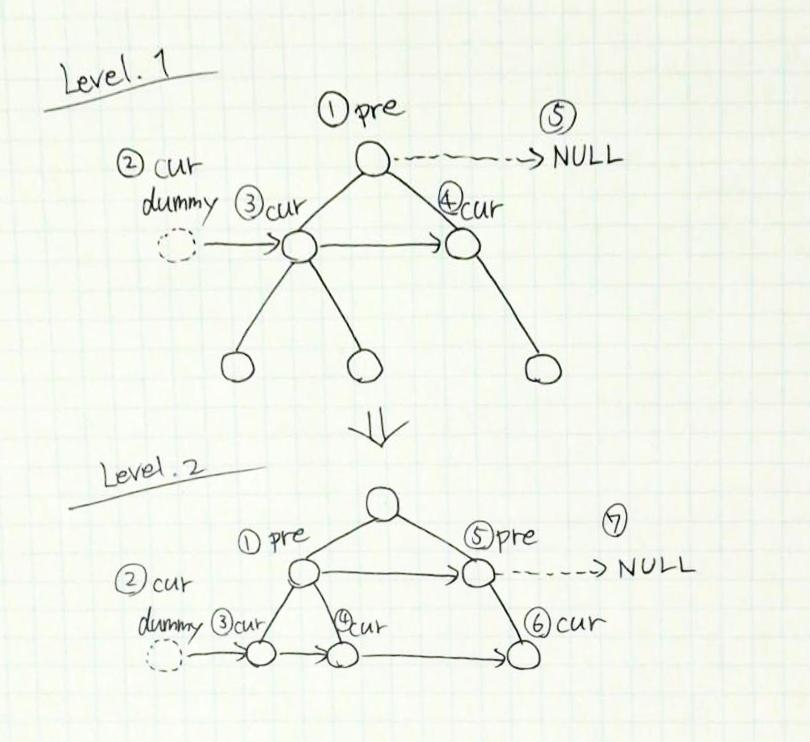 Level.1
① pre
⑤
NULL
② cur
dummy
③ cur
④ cur
Level.2
① pre
⑤ pre
⑦
NULL
② cur
dummy
③ cur
④ cur
⑥ cur